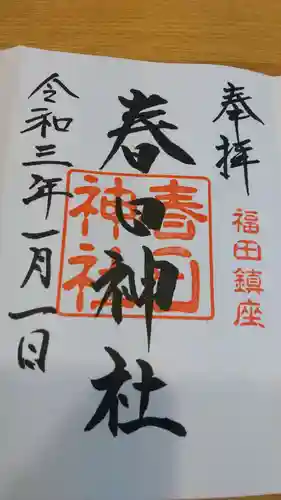 奉拝
福田鎮座
春日神社
春日神社
令和三年一月一日